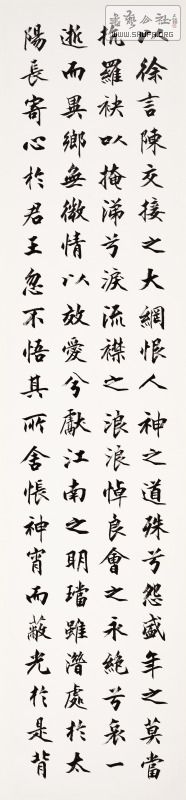 書藝公社
WWW.SHUFA.ORG
以徐言陳交接之大綱恨人神之道殊兮怨盛年之莫當
抗羅袂以掩涕兮淚流襟之浪浪悼良會之永絕兮哀一
逝而異鄉無微情以效愛兮獻江南之明璫雖潛處於太
陽長寄心於君王忽不悟其所舍悵神宵而蔽光於是背